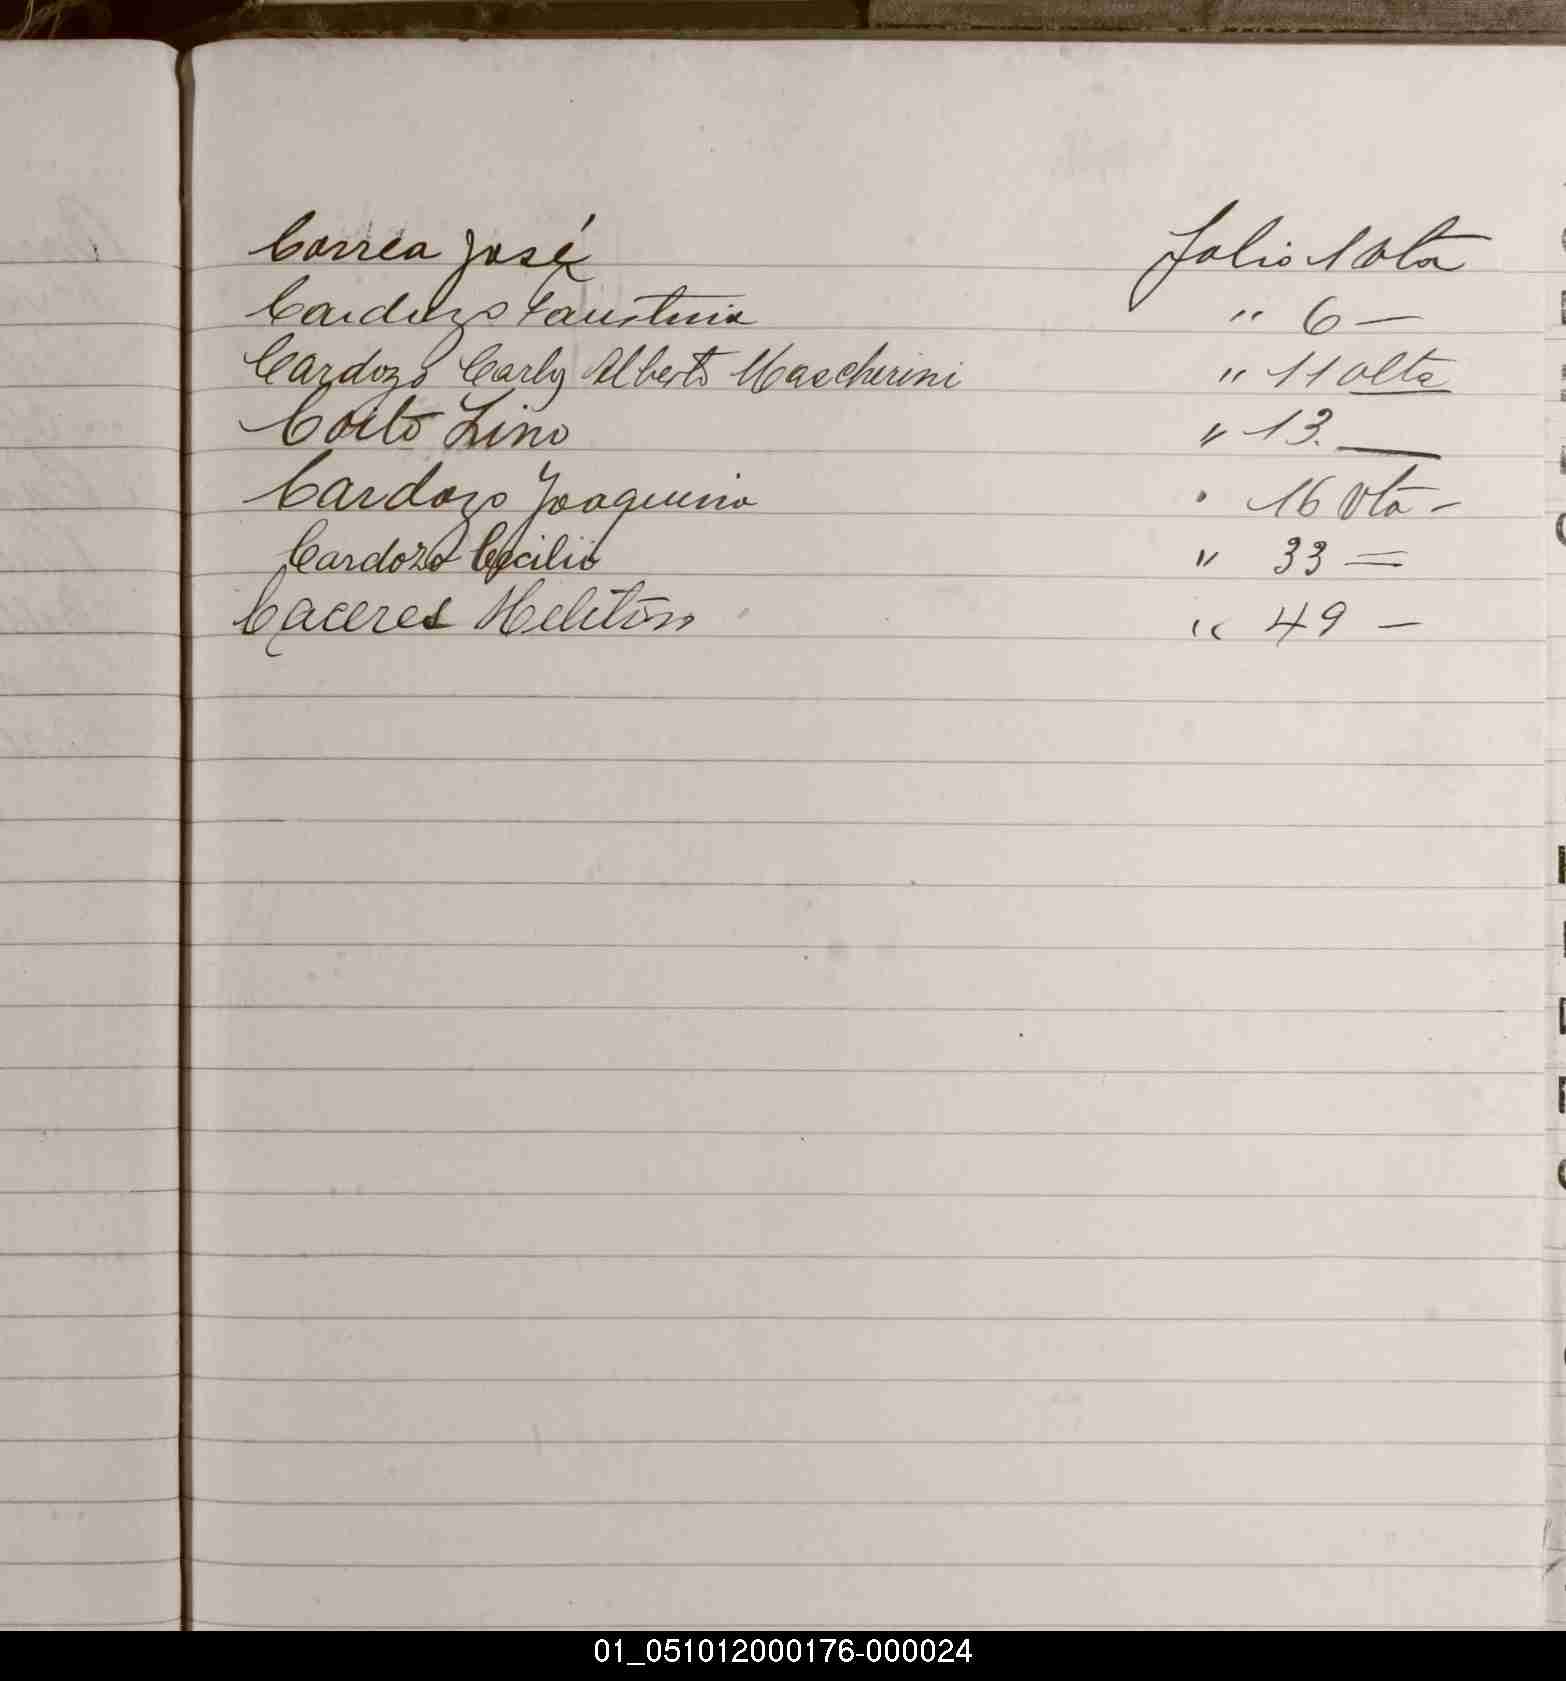 Correa José Folio 1 Vta
Cardozo Faustina " 6 —
Cardozo Carlos Alberto Mascherini " 11 Vlta
Coito Lino " 13. —
Cardozo Joaquina " 16 Vta -
Cardozo Cecilio " 33 =
Caceres Melitón " 49 —
01_051012000176-000024